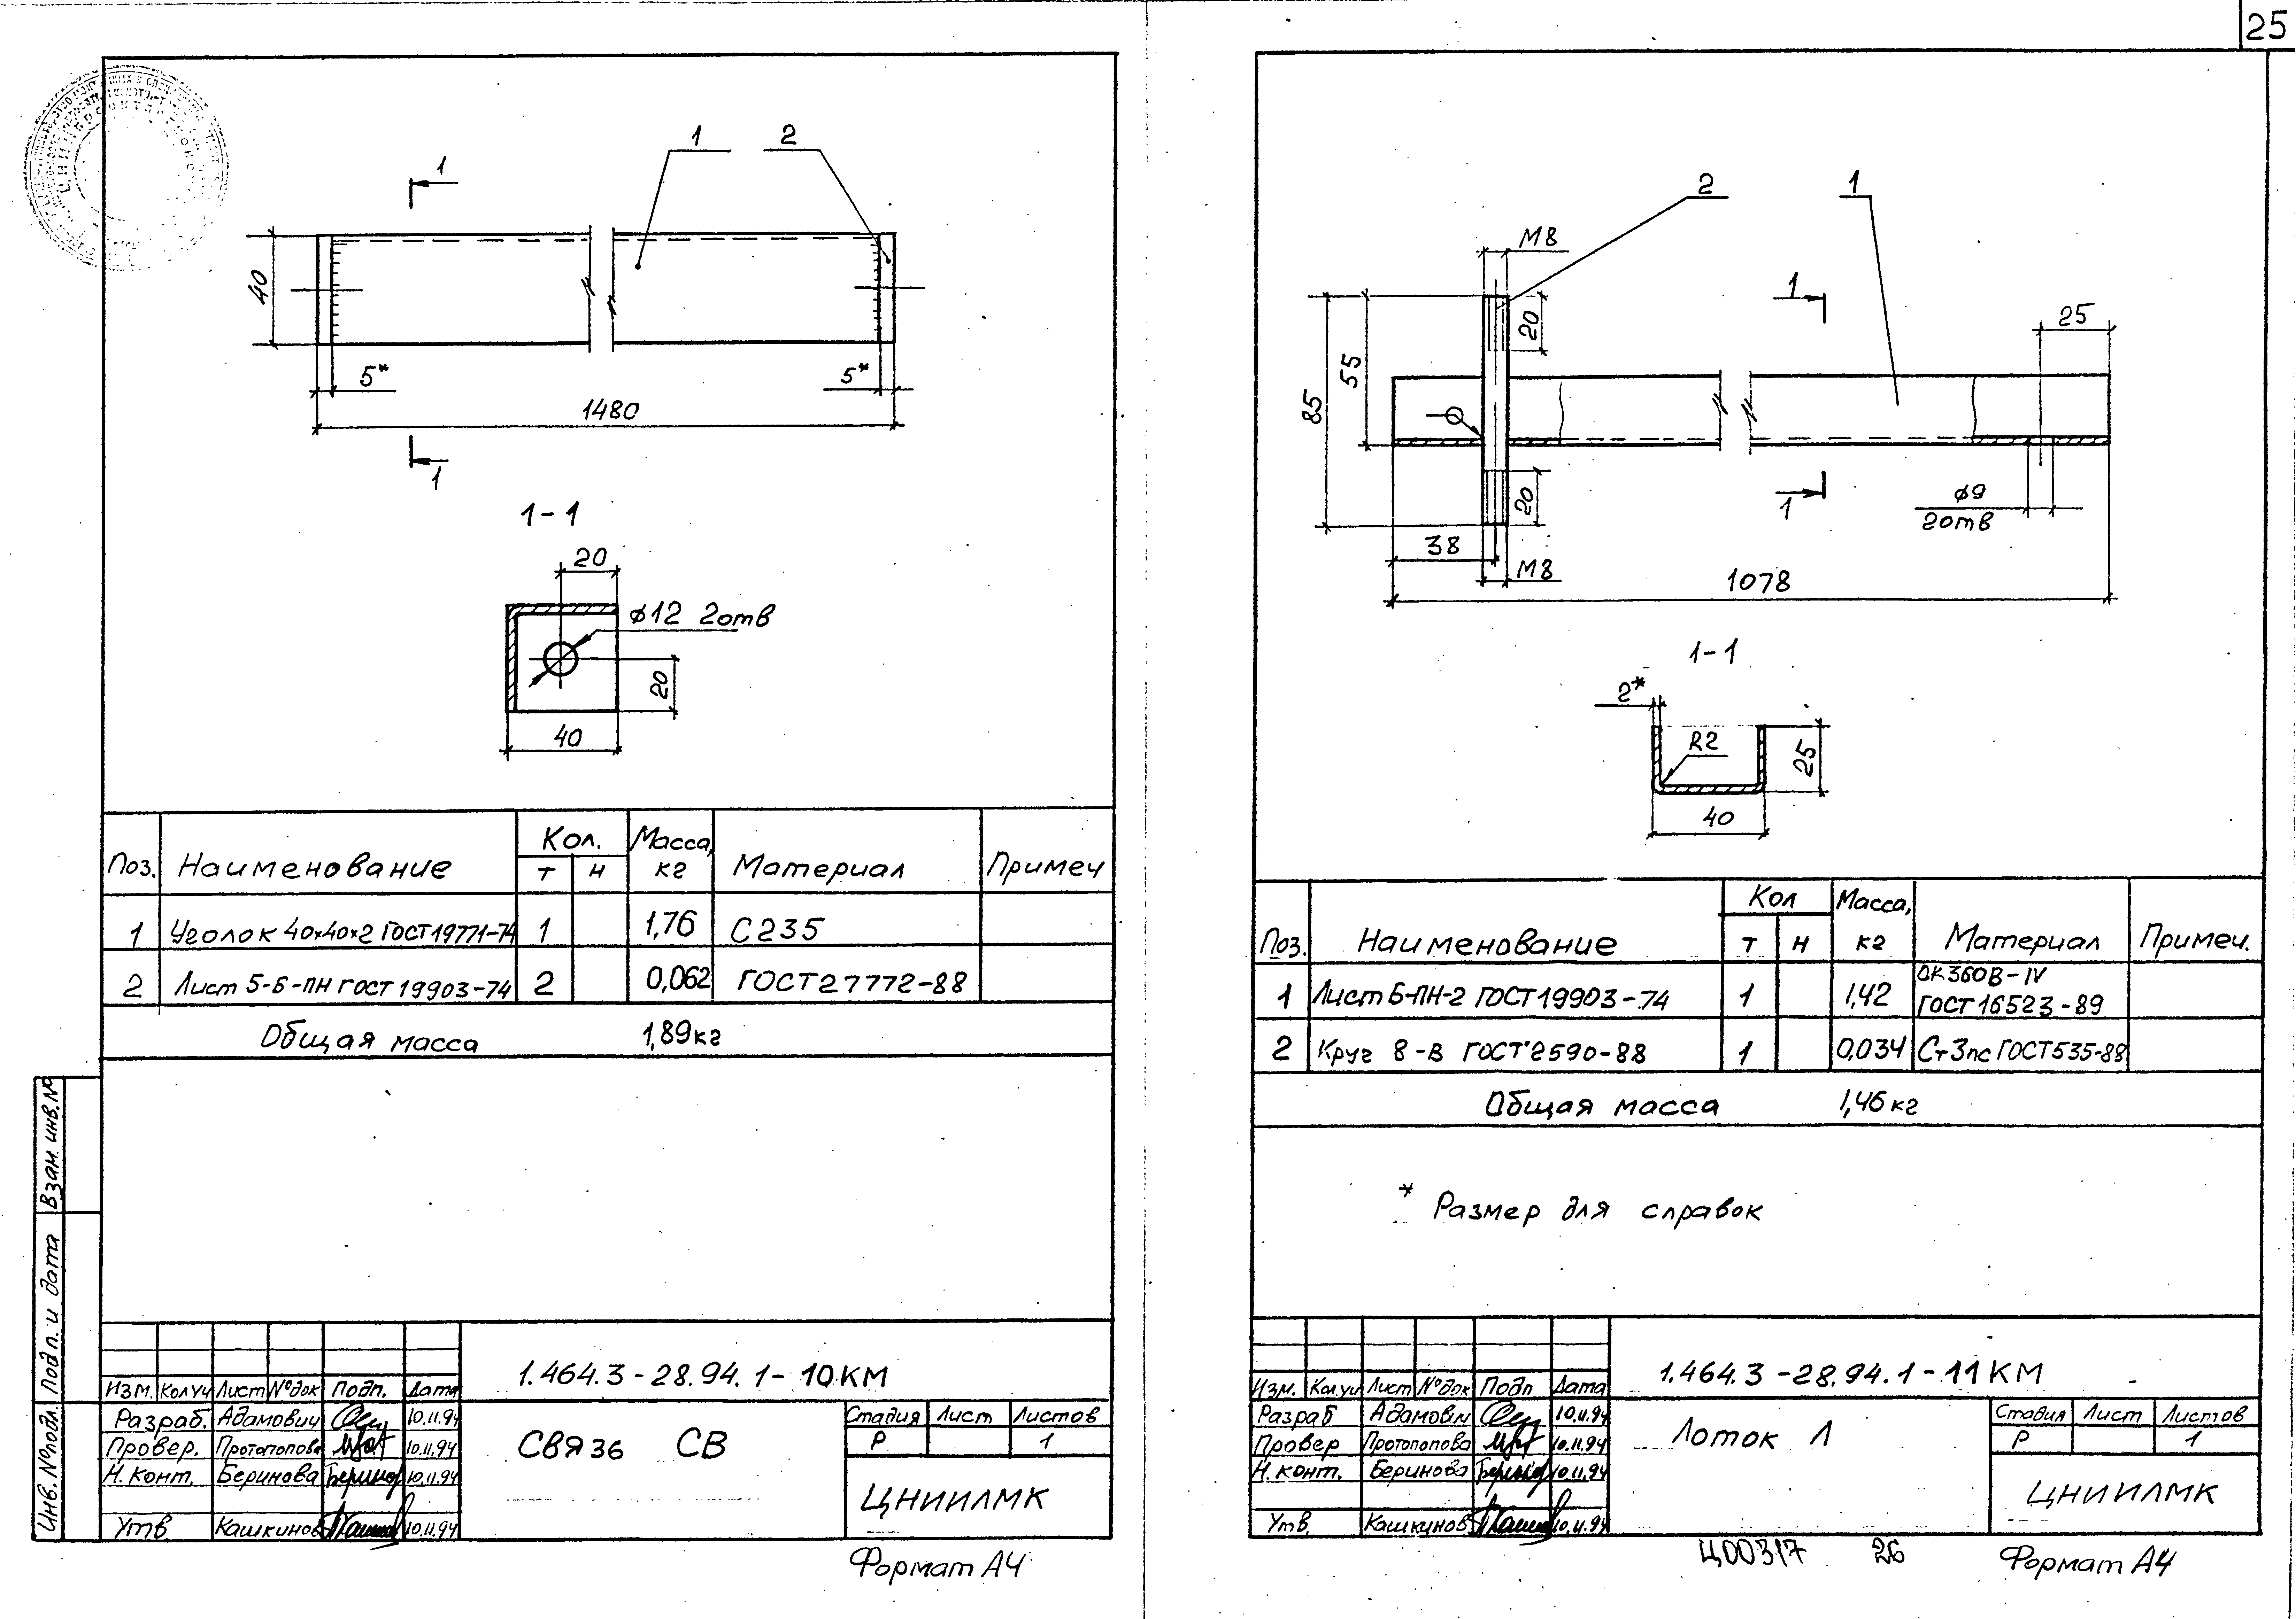 25
1
2
1
40
5*
5*
1480
1
1-1
20
ф12 2отв
20
40
Поз.
Наименование
Кол.
т
н
Масса, кг
Материал
Примеч
1 Уголок 40х40х2 ГОСТ 19771-74 1 1,76 С235
2 Лист 5-Б-ПН ГОСТ 19903-74 2 0,062 ГОСТ 27772-88
Общая масса 1,89кг
Взам. инв. №
Подп. и дата
Инв. № подл.
1.464.3-28.94.1-10КМ
Изм. Кол.уч Лист №док Подп. Дата
Разраб. Адамович 10.11.94
Провер. Протопопова 10.11.94
Н.конт. Беринова 10.11.94
Утв Кашкинов 10.11.94
Связь СВ
Стадия Лист Листов
Р 1
ЦНИИЛМК
Формат А4
2
1
М8
1
25
20
55
85
20
1
ф9
2отв
38
М8
1078
1-1
2*
R2
25
40
Поз.
Наименование
Кол
т
н
Масса, кг
Материал
Примеч.
1 Лист Б-ПН-2 ГОСТ 19903-74 1 1,42 ОК360В-IV ГОСТ 16523-89
2 Круг 8-В ГОСТ 2590-88 1 0,034 Ст3пс ГОСТ 535-88
Общая масса 1,46кг
* Размер для справок
1.464.3-28.94.1-11КМ
Изм. Кол.уч Лист №док Подп Дата
Разраб Адамович 10.11.94
Провер Протопопова 10.11.94
Н.конт. Беринова 10.11.94
Утв. Кашкинов 10.11.94
Лоток Л
Стадия Лист Листов
Р 1
ЦНИИЛМК
Ц00317 26
Формат А4